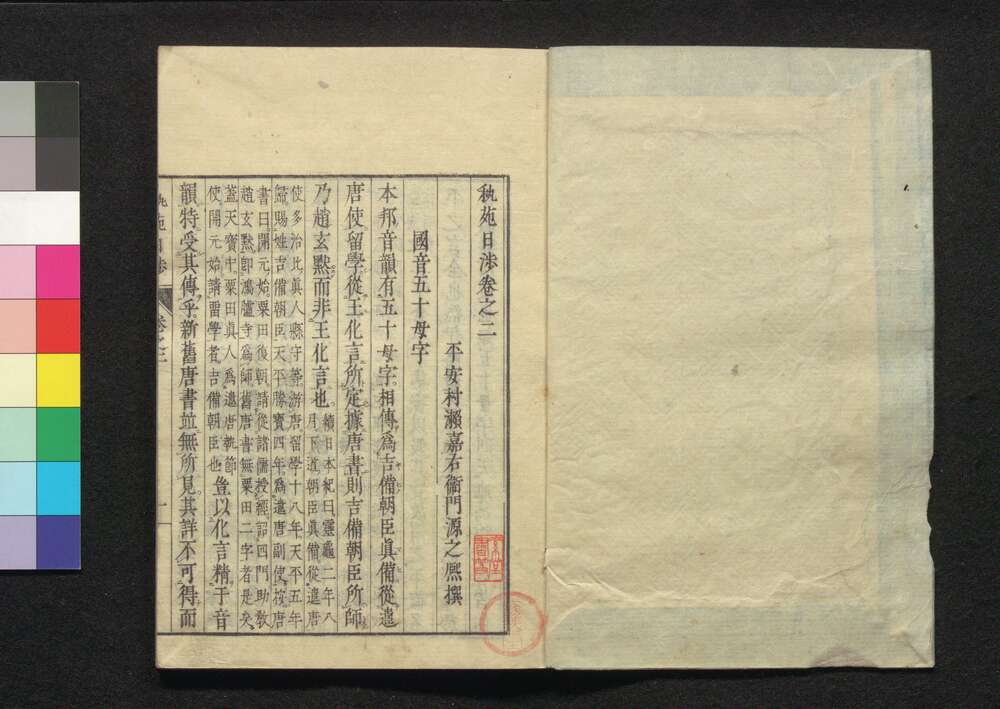 秇苑日渉卷之二
平安村瀨嘉右衞門源之熈撰
國音五十母字
本邦音韻有五十母字相傳爲吉備朝臣眞備從遣
唐使留學從王化言所定據唐書則吉備朝臣所師
乃趙玄默而非王化言也
續日本紀曰靈龜二年八
月下道朝臣眞備從遣唐
使多治比眞人縣守等游唐留學十八年天平五年
歸賜姓吉備朝臣天平勝寶四年爲遣唐副使按唐
書曰開元始粟田復朝請從諸儒授經詔四門助敎
趙玄默卽鴻臚寺爲師舊唐書無粟田二字者是矣
蓋天寶中粟田眞人爲遣唐執節
使開元始請留學者吉備朝臣也
豈以化言精于音
韻特受其傳乎新舊唐書竝無所見其詳不可得而
苑日渉
卷之二
一